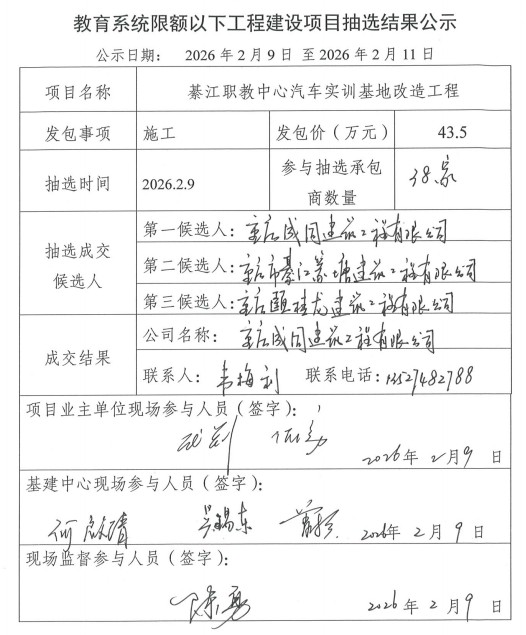 教育系统限额以下工程建设项目抽选结果公示
公示日期： 2026 年 2 月 9 日 至 2026 年 2 月 11 日
项目名称 綦江职教中心汽车实训基地改造工程
发包事项 施工 发包价（万元） 43.5
抽选时间 2026.2.9 参与抽选承包商数量 38家
抽选成交候选人
第一候选人：重庆成同建筑工程有限公司
第二候选人：重庆市綦江营塘建筑工程有限公司
第三候选人：重庆颐桂龙建筑工程有限公司
成交结果
公司名称：重庆成同建筑工程有限公司
联系人：韦梅利 联系电话：13527482788
项目业主单位现场参与人员（签字）：
2026年 2月9 日
基建中心现场参与人员（签字）：
吴锡东 2026年 2 月 9 日
现场监督参与人员（签字）：
陈勇 2026年 2 月 9 日